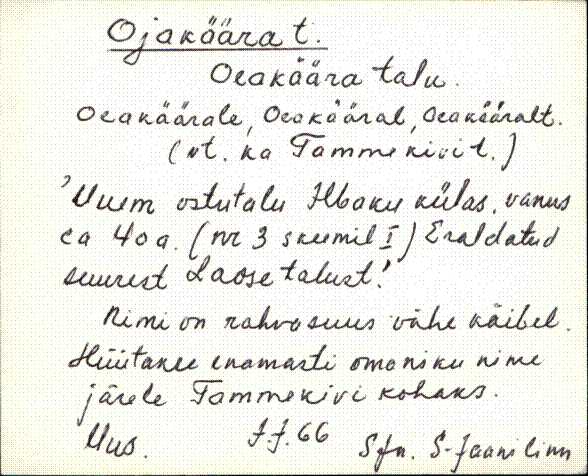 Ojakäära t.
Oeakäära talu.
Oeakäärale, Oeakääral, Oeakääralt.
(vt. ka Tammekivi t.)
'Uuem ostutalu Ilbaku külas, vanus
ca 40 a. (nr 3 skeemil I) Eraldatud
suurest Laose talust.'
Nimi on rahvasuus vähe käibel.
Hüütakse enamasti omaniku nime
järele Tammekivi kohaks.
Uus. J.J. 66 Sjn. S-Jaani linn